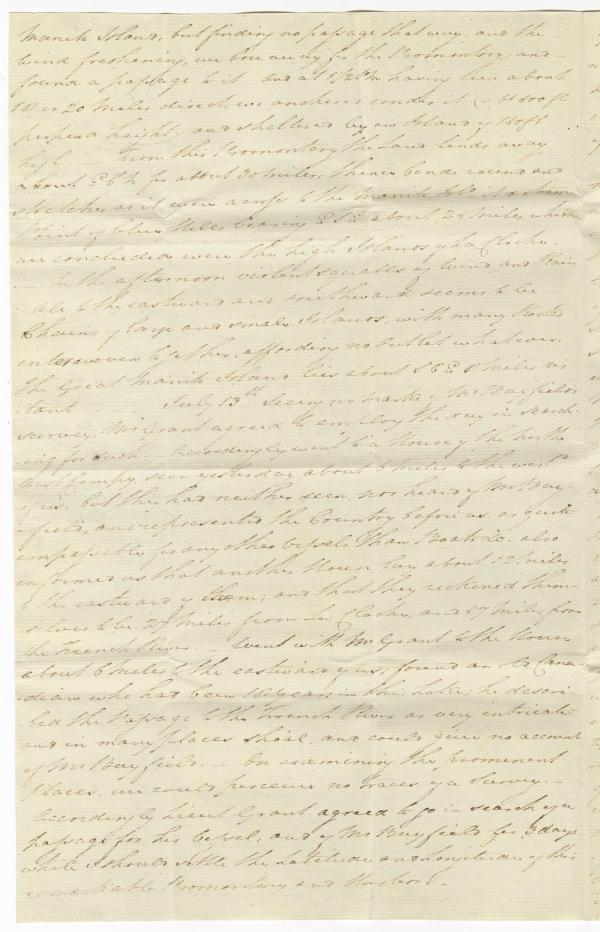 Manito Island, but finding no passage that way, and the
wind freshening, we bore away for the Promontory, and
found a passage to it and at 1/2 having been about
18 or 20 Miles direct we anchored under it (abt 500 ft
perpend height; and sheltered by an Island of 150 ft
high From this Promontory the Land tends away
about for about 30 miles, thence bends round and
stretches as it were across to the Manito
Point of blue Hills bearing about 25 miles which
we concluded were the high Islands of La Cloche.
— In the afternoon violent squalls of Wind and Rain
all to the eastward and southward seems to be
Chains of large and small Islands, with many Rocks
interwoven together, affording no outlet whatever.
The Great Manito Island lies about 8 miles dis
tant July 13th Seeing no marks of Mr Bayfield's
survey, Mr Grant agreed to employ the day in search
-ing for such. Accordingly went to a House of the
seen yesterday about 6 miles to the westd
of us, but they had neither seen, nor heard of Mr Bay-
-field, and represented the Country before us as quite
impassable for any other vessels than Boats &c: also
informed us that another House lay about 12 miles
to the eastward of them; and that they reckoned them-
selves to be 27 miles from La Cloche, and 57 miles from
the French River. — Went with Mr Grant to the House
about 6 miles to the eastward of us; found an old Cana
dian who had been 18 years in this Lake; he descri-
bed the Passage to the French River as very intricate
and in many places shoal, and could give no account
of Mr Bayfield. — On examining the prominent
places, we could perceive no traces of a Survey. —
Accordingly Lieut Grant agreed to go in search of a
passage for his Vessel, and of Mr Bayfield for 3 days
while I should settle the Latitude and Longitude of this
remarkable Promontory and Harbor.